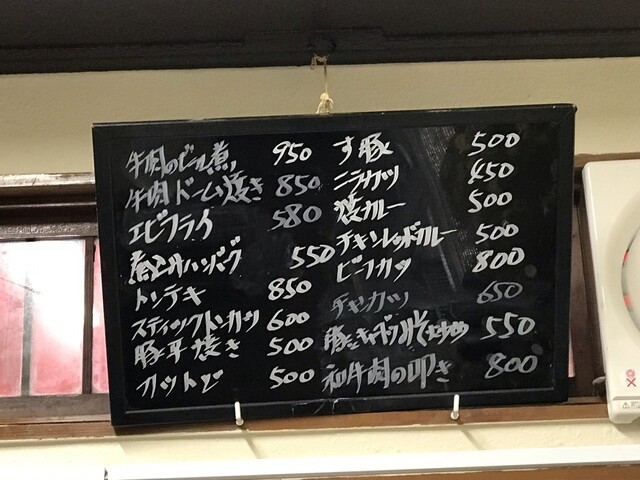 牛肉のビール煮 950
牛肉ドーム焼き 850
エビフライ 580
煮込みハンバーグ 550
トンテキ 850
スティックトンカツ 600
豚平焼き 500
カツトジ 500
す豚 500
ニラカツ 450
焼カレー 500
チキンレッドカレー 500
ビーフカツ 800
チキンカツ 650
豚とキャベツ 550
和牛肉の叩き 800